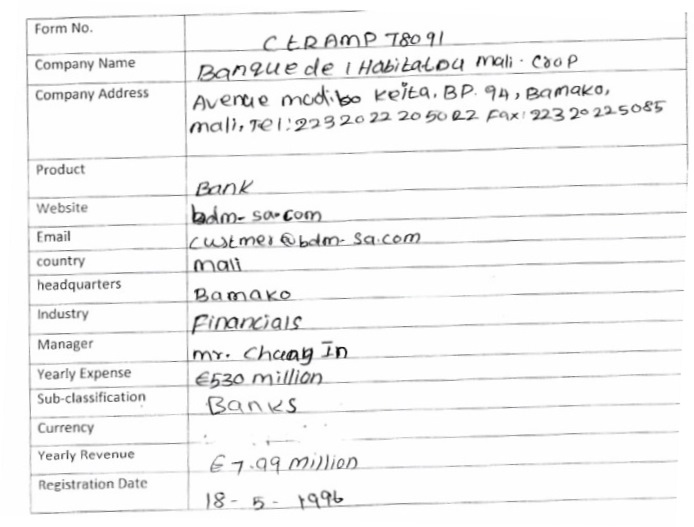 Form No. CtRAMP 78091
Company Name Banque de l Habitatou mali. Coop
Company Address Avenue modibo Keita. BP. 94, Bamako,
mali, Tel: 223 20 22 20 50 Fax: 223 20 225085
Product Bank
Website bdm-sa.com
Email custmer@bdm-sa.com
country mali
headquarters Bamako
Industry Financials
Manager mr. Chuang In
Yearly Expense €530 million
Sub-classification Banks
Currency
Yearly Revenue €7.99 million
Registration Date 18-5-1996